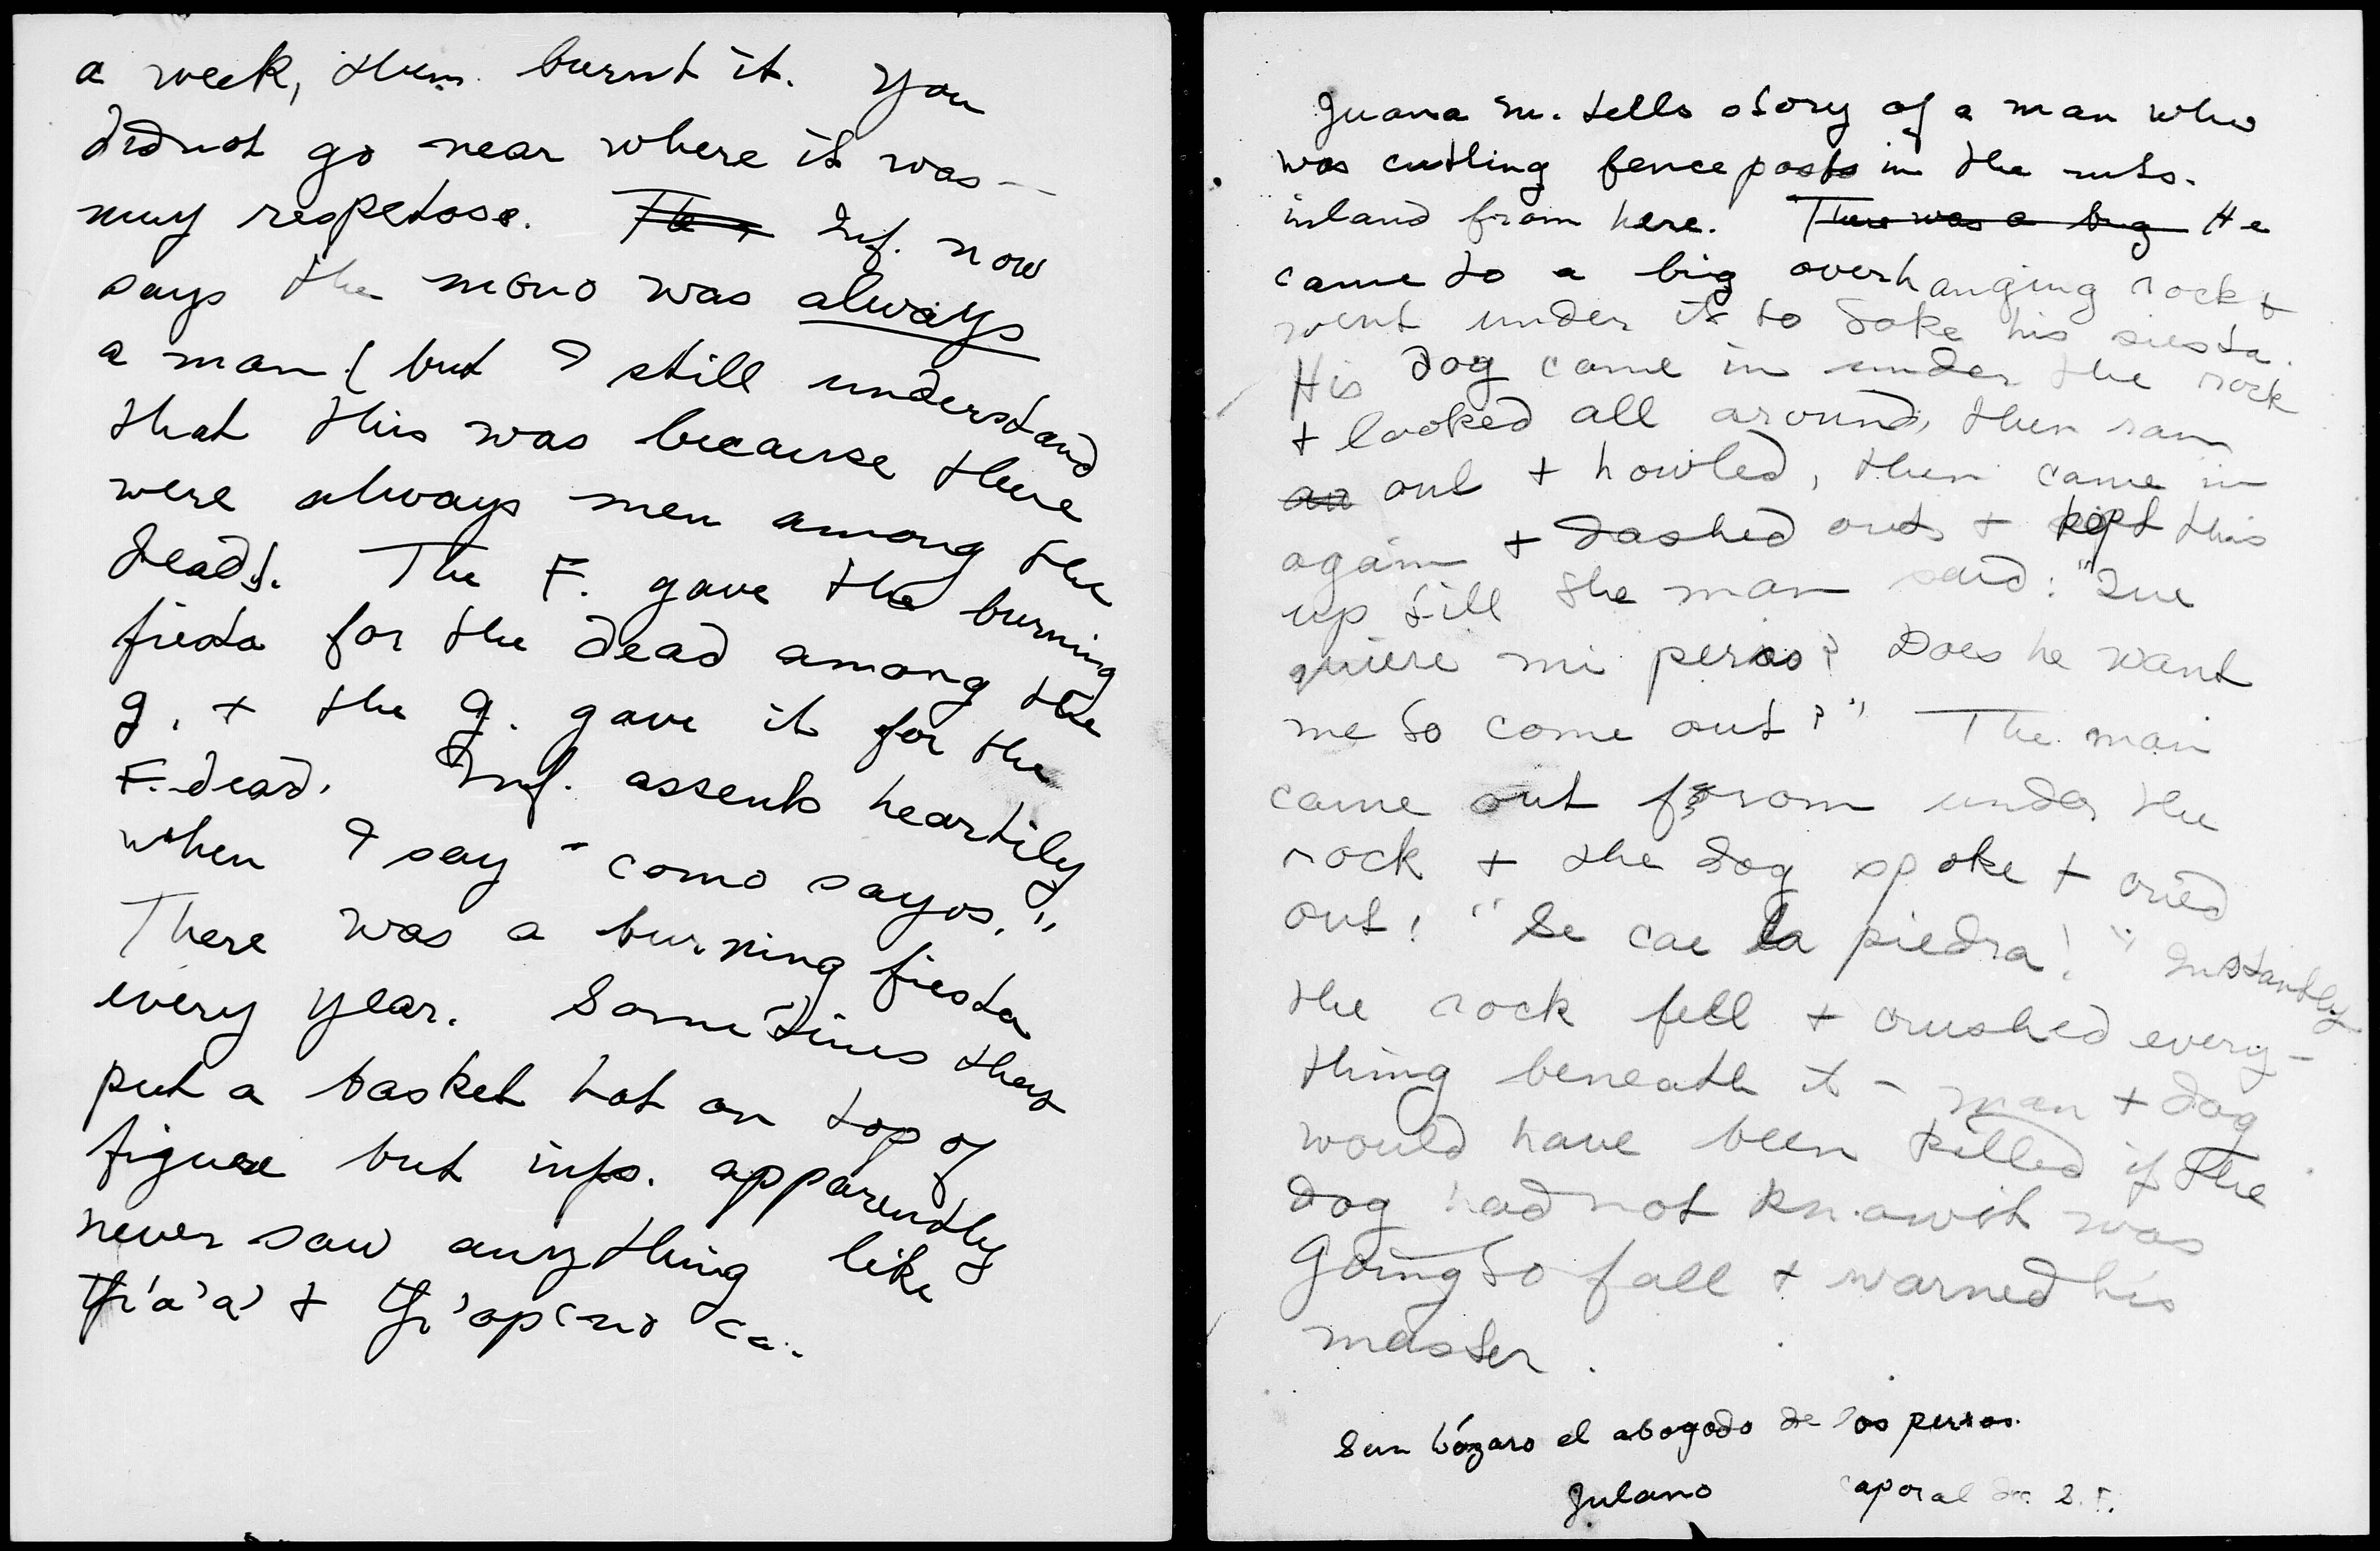 a week, then burnt it. You
did not go near where it was —
muy respetoso. The Inf. now
says the mono was always
a man (but I still understand
that this was because there
were always men among the
dead). The F. gave the burning
fiesta for the dead among the
g. + the g. gave it for the
F. dead. Inf. assents heartily
when I say "como sayos."
There was a burning fiesta
every year. Sometimes they
put a basket hat on top of
figure but infs. apparently
never saw anything like

Juana M. tells story of a man who
was cutting fence posts in the mts.
inland from here. There was a big He
came to a big overhanging rock +
went under it to take his siesta.
His dog came in under the rock
+ looked all around, then ran
an out + howled, then came in
again + dashed out + kept this
up till the man said: "Que
quiere mi perro? Does he want
me to come out?" The man
came out from under the
rock + the dog spoke + cried
out: "Se cae la piedra!" Instantly
the rock fell + crushed every-
thing beneath it – man + dog
would have been killed if the
dog had not known it was
going to fall + warned his
master.
San Lázaro el abogado de los perros.
Julano caporal